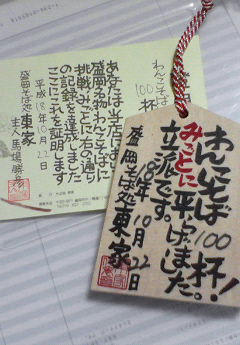 わんこそば
100杯
あなたは当店に於て
盛岡名物わんこそばに
挑戦みごとに右の通り
の記録を達成しました
ここにこれを証明します
平成18年10月22日
盛岡そば処 東家
主人 馬場
わんこそば
100杯!
みごとに平らげました。
立派です。
18年10月22日
盛岡そば処 東家